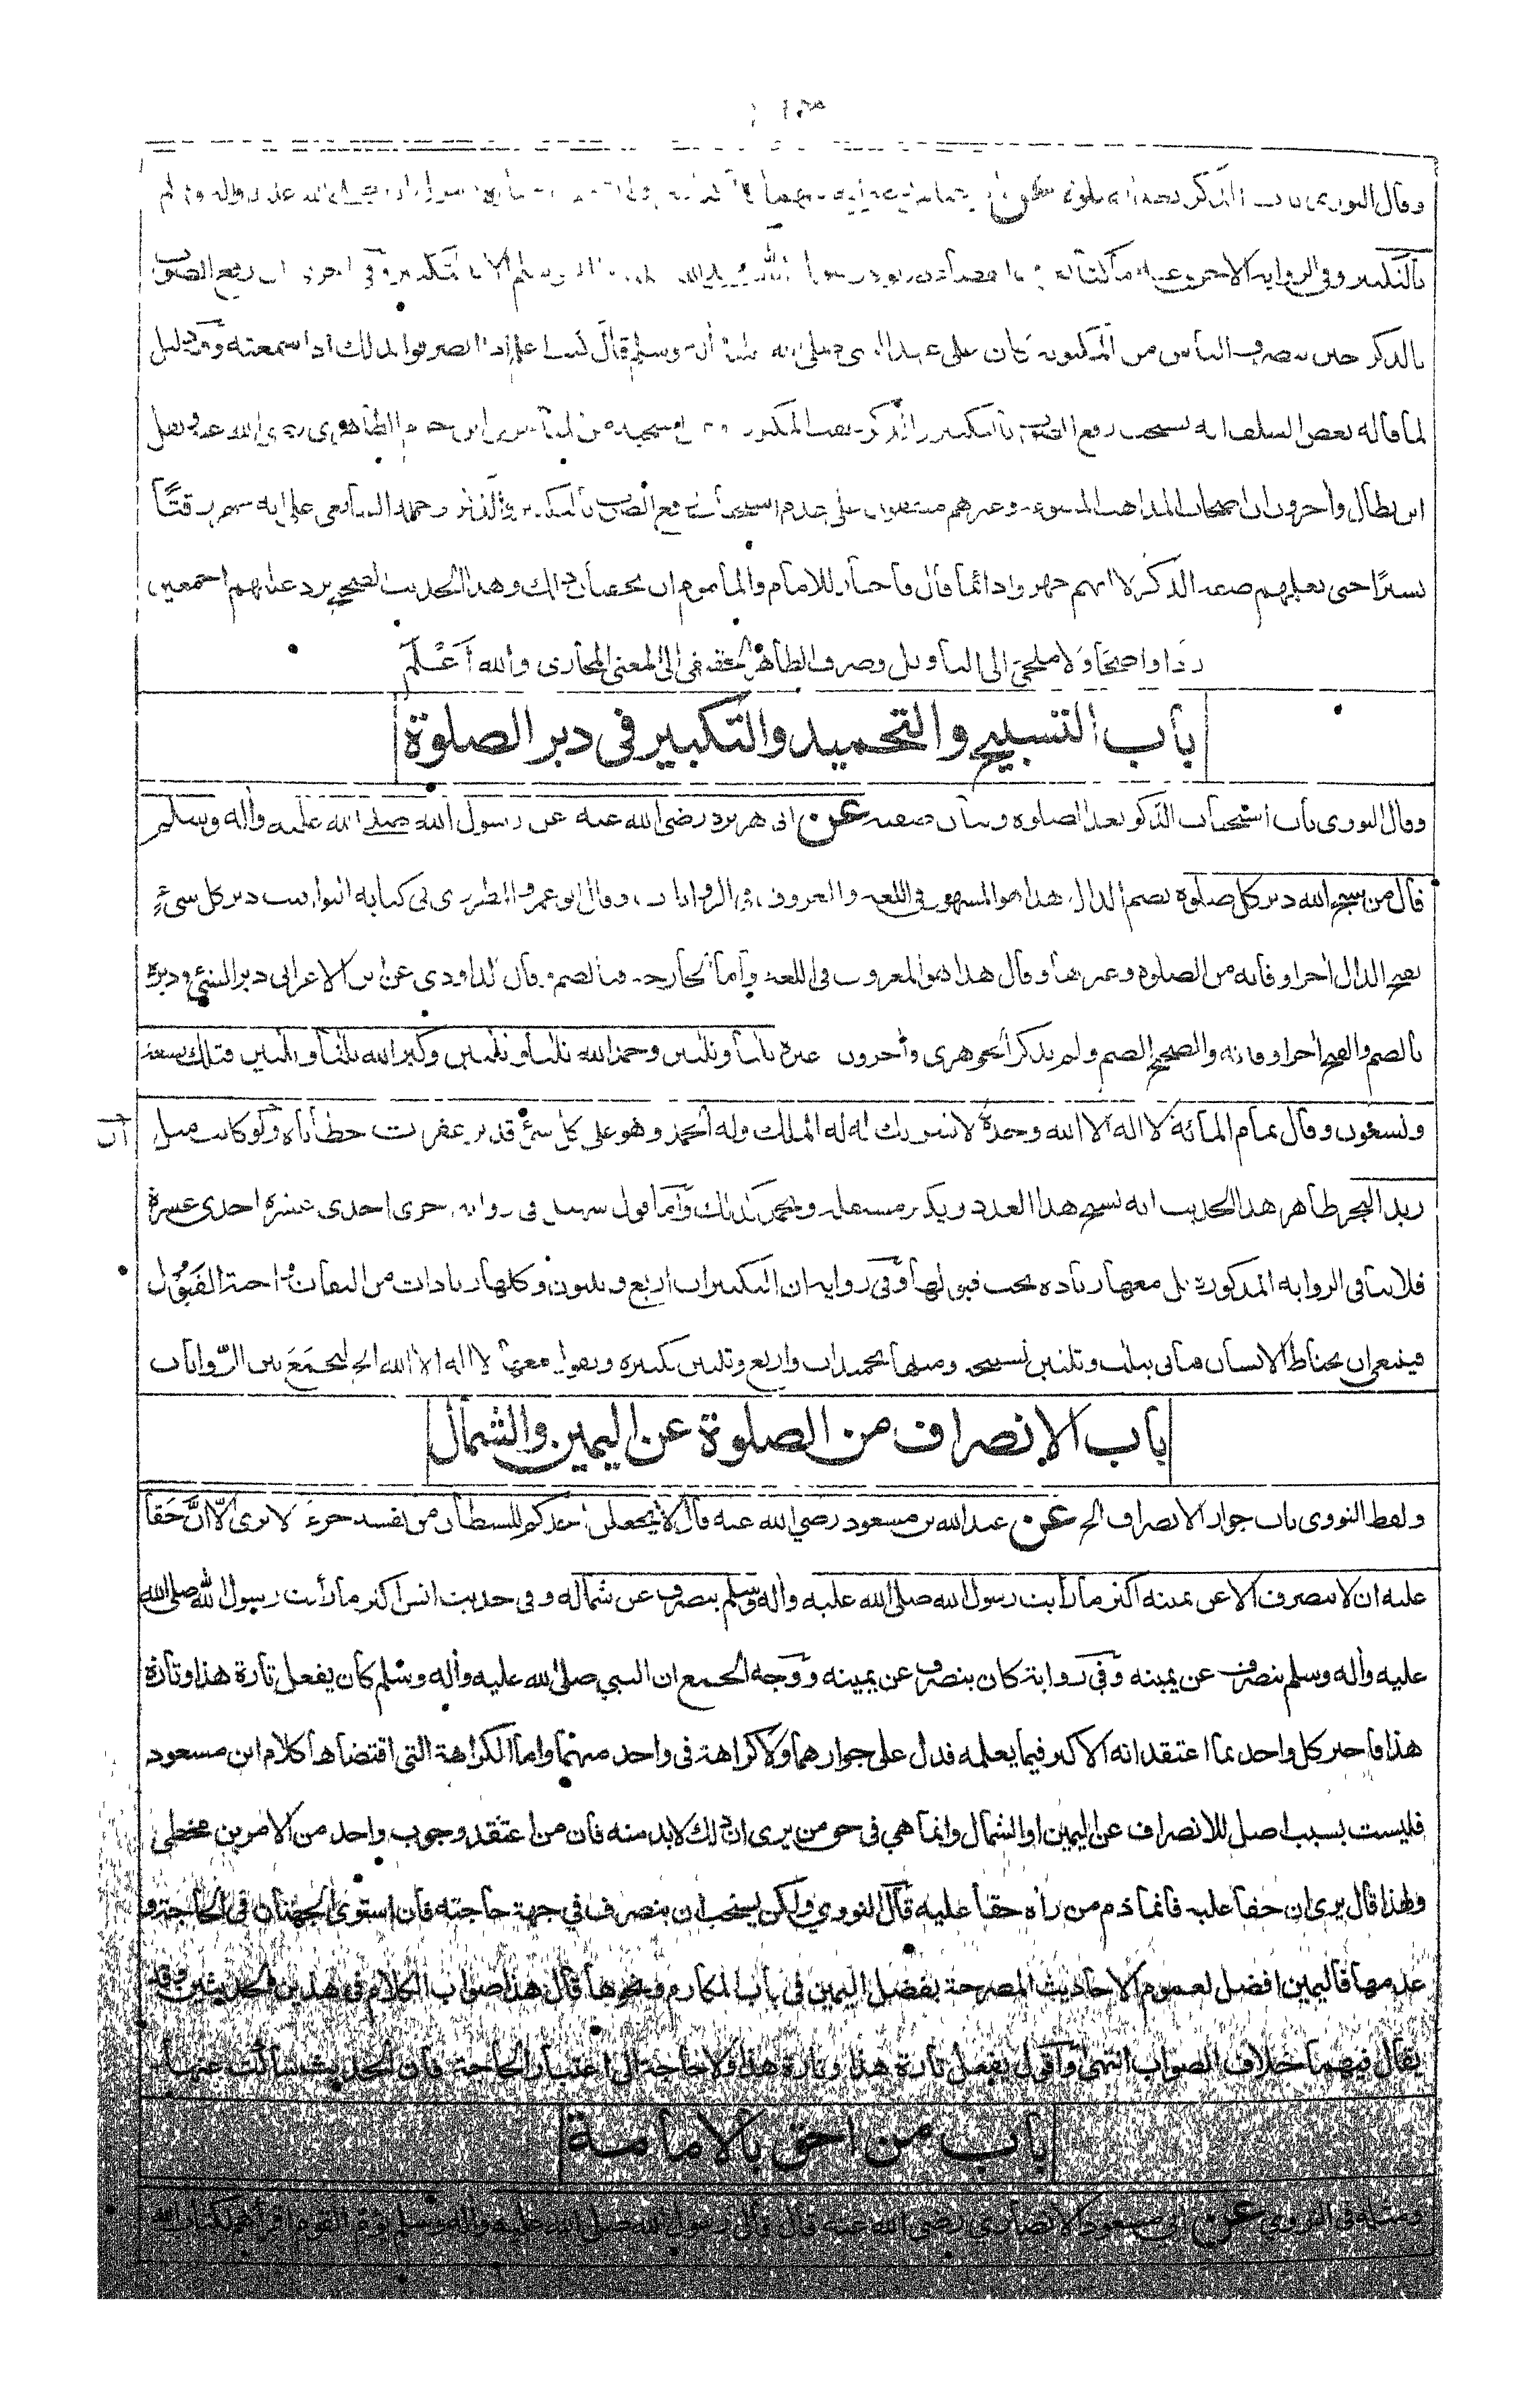 وقال النووى باب الذكر بعد الصلوة عن رسول الله صلى الله عليه واله وسلم
بالتكبير وفى الرواية الاخرى عنه ما كنا رسول الله صلى الله وسلم الا بالتكبير وفى اخرى ان رفع الصوت
بالذكر حين ينصرف الناس من المكتوبة كان على عهد النبى صلى الله عليه واله وسلم قال كنت اعلم اذا انصرفوا بذلك اذا سمعته وهو دليل
لما قاله بعض السلف انه يستحب رفع الصوت بالتكبير والذكر عقب المكتوبة ابن حزم الظاهرى ونقل
ابن بطال واخرون ان اصحاب المذاهب المتبوعة وغيرهم متفقون على عدم استحباب رفع الصوت بالتكبير والذكر وحمله الشافعى على انه جهر وقتًا
يسيرًا حتى يعلمهم صفة الذكر لا انهم جهروا دائما قال فاختار للامام والماموم ان يخفيان ذلك وهذا الحديث الصحيح يرد عليهم اجمعين
ردا واضحا ولا ملجئ الى التاويل وصرف الظاهر الحقيقى الى المعنى المجازى والله اعلم
باب التسبيح والتحميد والتكبير فى دبر الصلوة
وقال النووى باب استحباب الذكر بعد الصلوة وبيان صفته عن ابى هريرة رضى الله عنه عن رسول الله صلى الله عليه واله وسلم
قال من سبح الله دبر كل صلوة بضم الدال هذا هو المشهور فى اللغة والمعروف فى الروايات وقال ابو عمر والمطرزى فى كتابه اليواقيت دبر كل شئ
بفتح الدال اخر اوقاته من الصلوة وغيرها وقال هذا هو المعروف فى اللغة واما الجارحة فبالضم وقال الداودى عن ابن الاعرابى دبر الشئ ودبره
بالضم والفتح اخر اوقاته والصحيح الضم ولم يذكر الجوهرى واخرون غيره ثلثا وثلثين وحمد الله ثلثا وثلثين وكبر الله ثلثا وثلثين فتلك تسعة
وتسعون وقال تمام المائة لا اله الا الله وحده لا شريك له له الملك وله الحمد وهو على كل شئ قدير غفرت خطاياه ولو كانت مثل
زبد البحر ظاهر هذا الحديث انه يسبح هذا العدد ويكبر مستقلة ويحمد كذلك واما قول سهيل فى رواية اخرى احدى عشرة احدى عشرة
فلا ينافى الرواية المذكورة بل معها زيادة يجب قبولها وفى رواية ان التكبيرات اربع وثلثون وكلها زيادات من الثقات واجبة القبول
فينبغى ان يحتاط الانسان فيأتى بثلث وثلثين تسبيحة ومثلها تحميدات واربع وثلثين تكبيرة ويقول معها لا اله الا الله الخ ليجمع بين الروايات
باب الانصراف من الصلوة عن اليمين والشمال
ولفظ النووى باب جواز الانصراف الخ عن عبد الله بن مسعود رضى الله عنه قال لا يجعلن احدكم للشيطان من نفسه جزء لا يرى الا ان حقا
عليه ان لا ينصرف الا عن يمينه اكثر ما رأيت رسول الله صلى الله عليه واله وسلم ينصرف عن شماله وفى حديث انس اكثر ما رأيت رسول الله صلى الله
عليه واله وسلم ينصرف عن يمينه وفى رواية كان ينصرف عن يمينه ووجه الجمع ان النبى صلى الله عليه واله وسلم كان يفعل تارة هذا وتارة
هذا فاخبر كل واحد بما اعتقد انه الاكثر فيما يعلمه فدل على جوازهما ولا كراهة فى واحد منهما واما الكراهة التى اقتضاها كلام ابن مسعود
فليست بسبب اصل الانصراف عن اليمين او الشمال وانما هى فى حق من يرى ان ذلك لابد منه فان من اعتقد وجوب واحد من الامرين مخطى
ولهذا قال يرى ان حقا عليه فانما ذم من رأه حقا عليه قال النووى ولكن يستحب ان ينصرف فى جهة حاجته فان استوى الجهتان فى الحاجة و
عدمها فاليمين افضل لعموم الاحاديث المصرحة بفضل اليمين فى باب المكارم ونحوها قال هذا صواب الكلام فى هذين الحديثين وقد
يقال فيهما خلاف الصواب انتهى واقول يفعل تارة هذا وتارة هذا ولا حاجة الى اعتبار الحاجة فان الحديث ساكت عنها
باب من احق بالامامة
ومثله فى النووى عن ابى مسعود الانصارى رضى الله عنه قال قال رسول الله صلى الله عليه واله وسلم يؤم القوم اقرأهم لكتاب الله